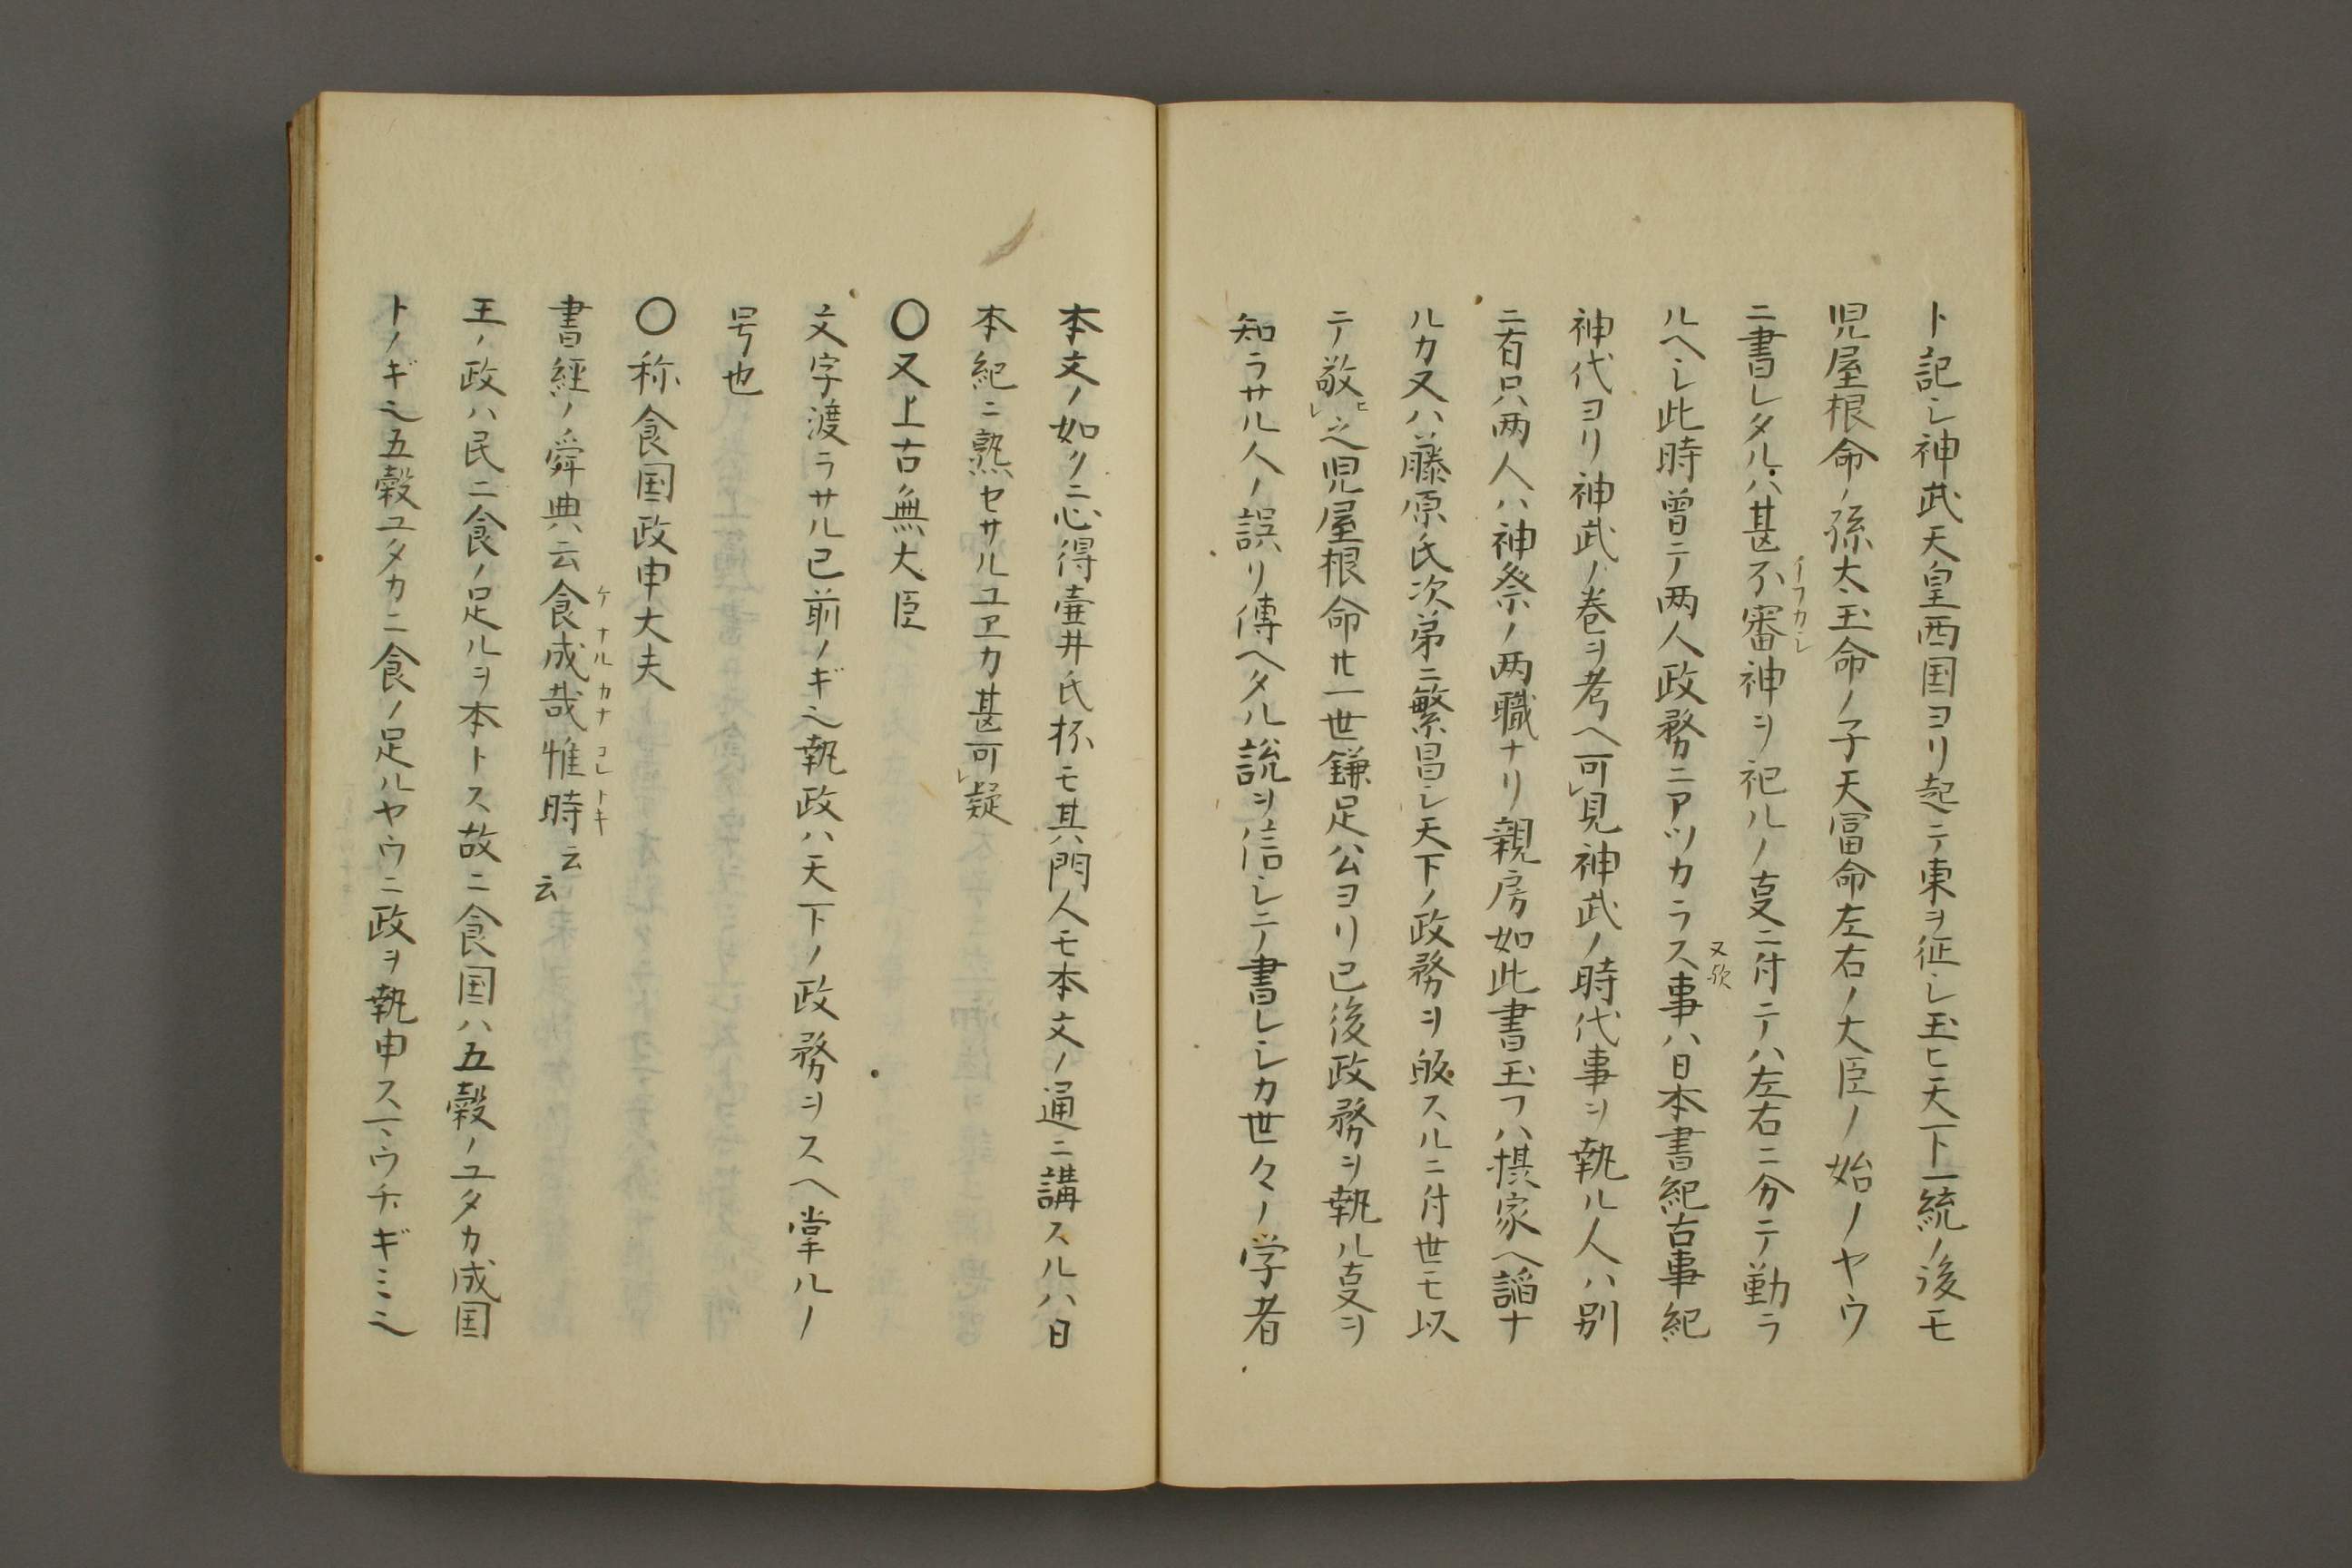 ト記シ神武天皇西国ヨリ起テ東ヲ征シ玉ヒ天下一統ノ後モ
児屋根命ノ孫太玉命ノ子天冨命左右ノ大臣ノ始ノヤウ
ニ書レタルハ甚不審神ヲ祀ルノ㕝ニ付テハ左右ニ分テ勤ラ
イフカシ
ルヘシ此時曽テ两人政務ニアツカラス事ハ日本書紀古事紀
又歟
神代ヨリ神武ノ巻ヲ考ヘ可レ見神武ノ時代事ヲ執ル人ハ別
ニ有只两人ハ神祭ノ两職ナリ親房如此書玉フハ摂家ヘ諂ナ
ルカ又ハ藤原氏次第ニ繁昌シ天下ノ政務ヲ皈スルニ付世モ以
テ敬ヒレ之児屋根命廿一世鎌足公ヨリ已後政務ヲ執ル㕝ヲ
知ラサル人ノ誤リ傳ヘタル説ヲ信シテ書レシカ世々ノ学者
本文ノ如クニ心得壷井氏杯モ其門人モ本文ノ通ニ講スルハ日
本紀ニ熟セサルユヱカ甚可レ疑
〇又上古無大臣
文字渡ラサル已前ノギ也執政ハ天下ノ政務ヲスヘ掌ルノ
号也
〇称食国政申大夫
書經ノ舜典云食成哉惟時云云
ケナルカナコレトキ
王ノ政ハ民ニ食ノ足ルヲ本トス故ニ食国ハ五穀ノユタカ成国
トノギ也五穀ユタカニ食ノ足ルヤウニ政ヲ執申スヿヽウチギミ也